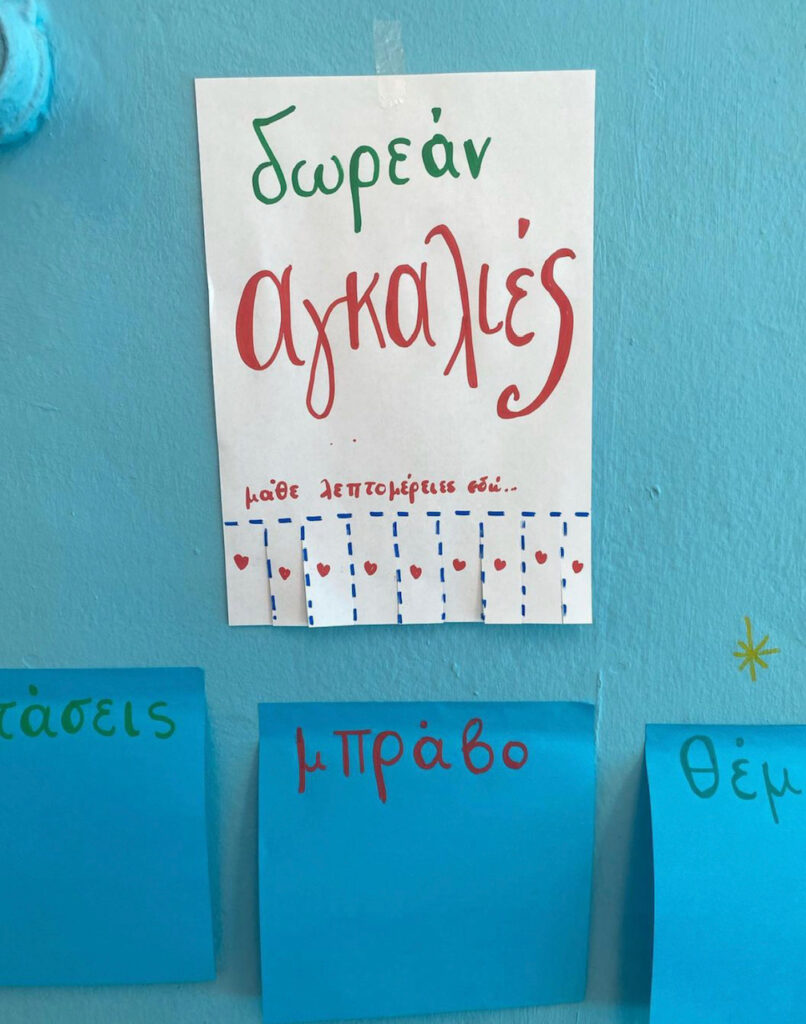 δωρεάν
αγκαλιές
μάθε λεπτομέρειες εδώ..
τάσεις
μπράβο
θέμ